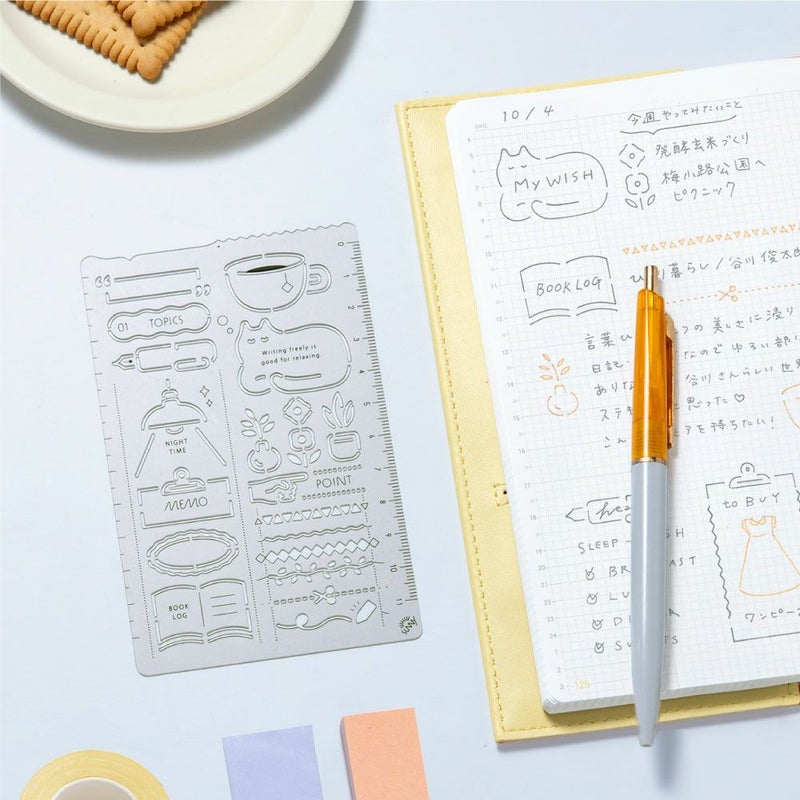 01 TOPICS
Writing freely is
good for relaxing.
NIGHT
TIME
MEMO
POINT
BOOK
LOG
0
1
2
3
4
5
6
7
8
9
10
11
10/4
今週やってみたいこと
My WISH
発酵玄米づくり
梅小路公園へ
ピクニック
BOOK LOG
暮らし/谷川俊太郎
言葉
つの美しさに浸り
日記
なのでゆるい
ありな
谷川さんらしい世界
ステキ
思った♡
こん
アを持ちたい!
to BUY
ワンピース
SLEEP
SH
BR
AST
LU
D
R
S
TS
125